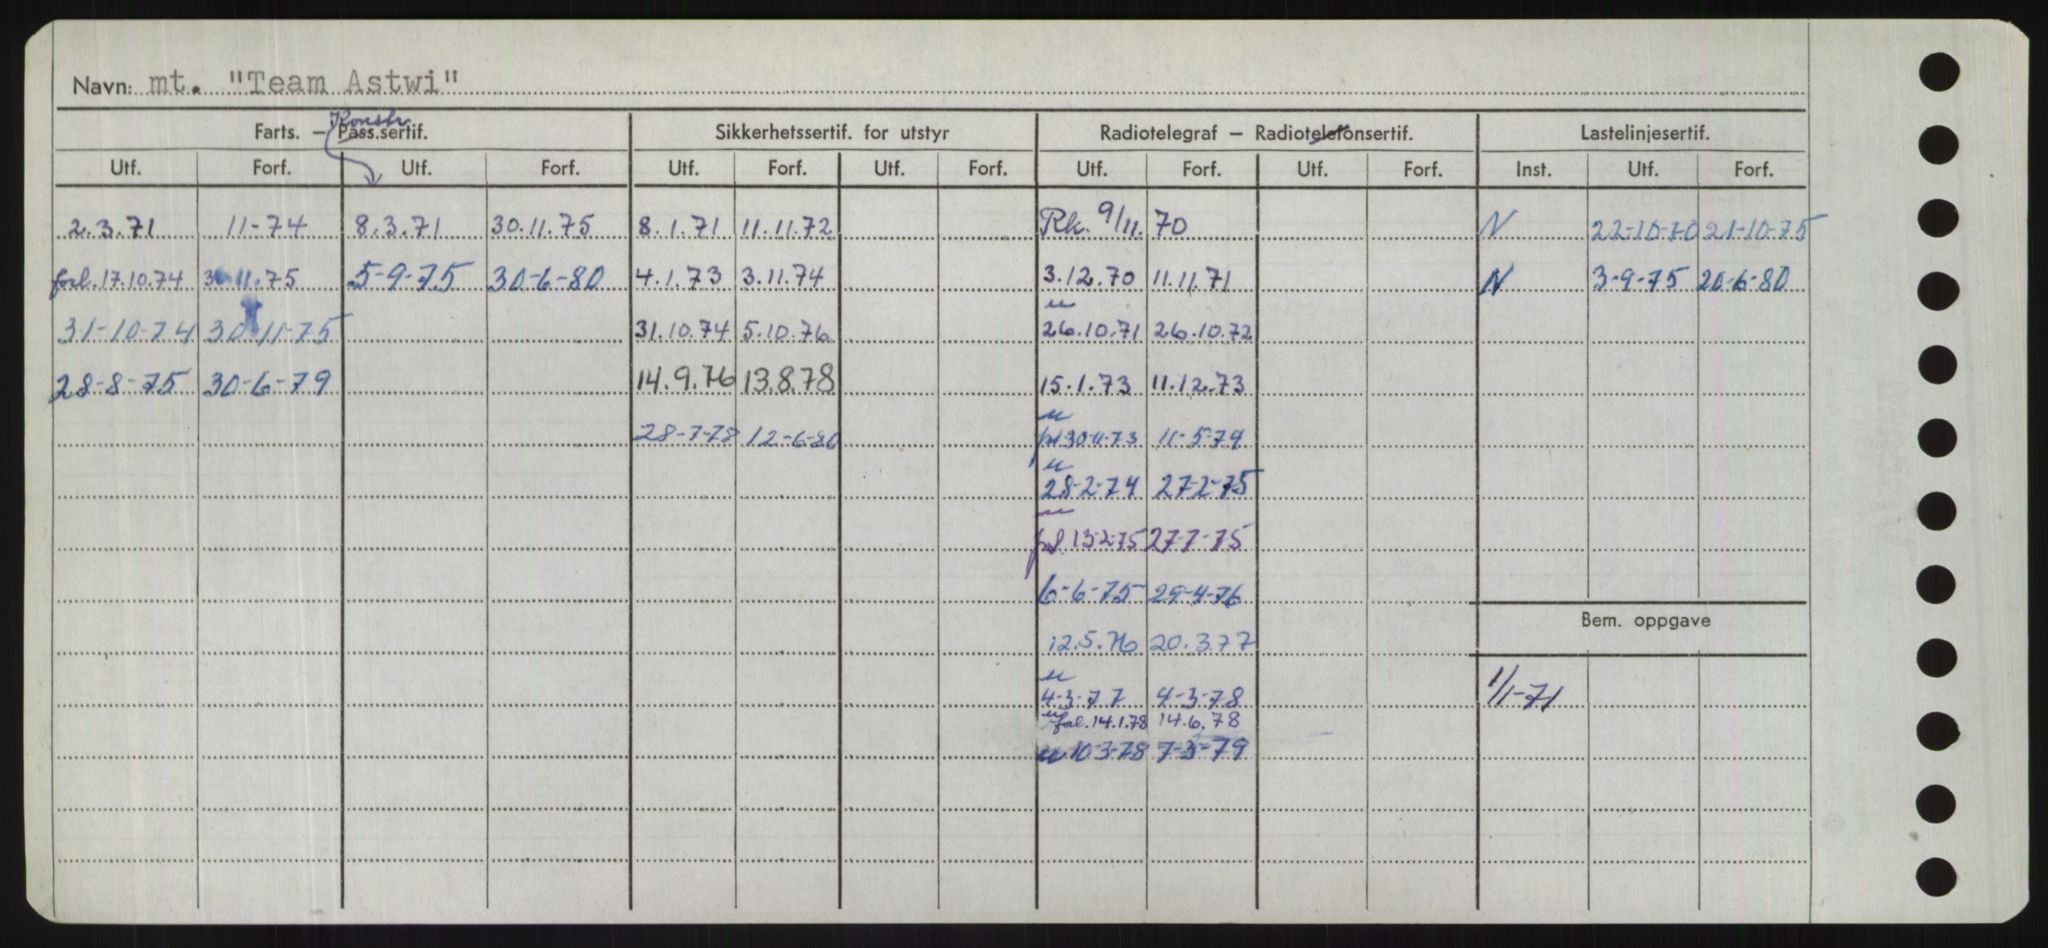 Navn: mt. "Team Astwi"
Konstr.
Farts. — Pass.sertif. Sikkerhetssertif. for utstyr Radiotelegraf — Radiotelefonsertif. Lastelinjesertif.
Utf. Forf. Utf. Forf. Utf. Forf. Utf. Forf. Utf. Forf. Utf. Forf. Inst. Utf. Forf.
2.3.71 11-74 8.3.71 30.11.75 8.1.71 11.11.72 Rk. 9/11. 70 N 22-10-70 21-10-75
forl. 17.10.74 30.11.75 5-9-75 30-6-80 4.1.73 3.11.74 3.12.70 11.11.71 N 3-9-75 20-6-80
u
31-10-74 30-11-75 31.10.74 5.10.76 26.10.71 26.10.72
28-8-75 30-6-79 14.9.76 13.8.78 15.1.73 11.12.73
u
28-7-78 12-6-80 30-11-73 11-5-74
u
28-2-74 27-2-75
u
13-2-75 27-7-75
6-6-75 29-4-76
Bem. oppgave
12.5.76 20.3.77
u
4-3-77 4-3-78 1/1-71
u forl. 14.1.78 14.6.78
u 10 3-78 7-3-79